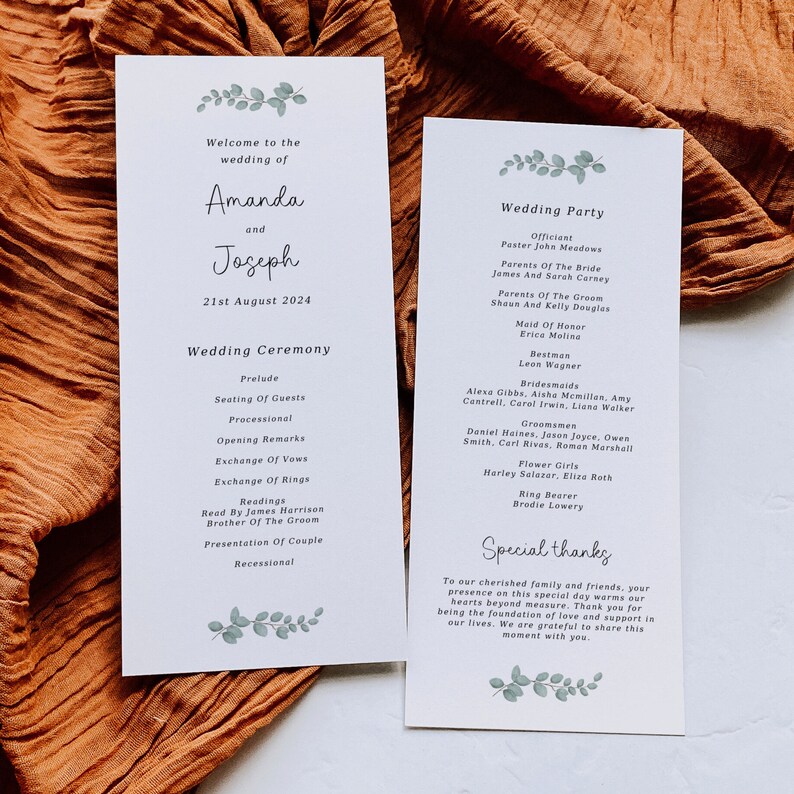 Welcome to the
wedding of
Amanda
and
Joseph
21st August 2024
Wedding Ceremony
Prelude
Seating Of Guests
Processional
Opening Remarks
Exchange Of Vows
Exchange Of Rings
Readings
Read By James Harrison
Brother Of The Groom
Presentation Of Couple
Recessional
Wedding Party
Officiant
Paster John Meadows
Parents Of The Bride
James And Sarah Carney
Parents Of The Groom
Shaun And Kelly Douglas
Maid Of Honor
Erica Molina
Bestman
Leon Wagner
Bridesmaids
Alexa Gibbs, Aisha Mcmillan, Amy
Cantrell, Carol Irwin, Liana Walker
Groomsmen
Daniel Haines, Jason Joyce, Owen
Smith, Carl Rivas, Roman Marshall
Flower Girls
Harley Salazar, Eliza Roth
Ring Bearer
Brodie Lowery
Special thanks
To our cherished family and friends, your
presence on this special day warms our
hearts beyond measure. Thank you for
being the foundation of love and support in
our lives. We are grateful to share this
moment with you.